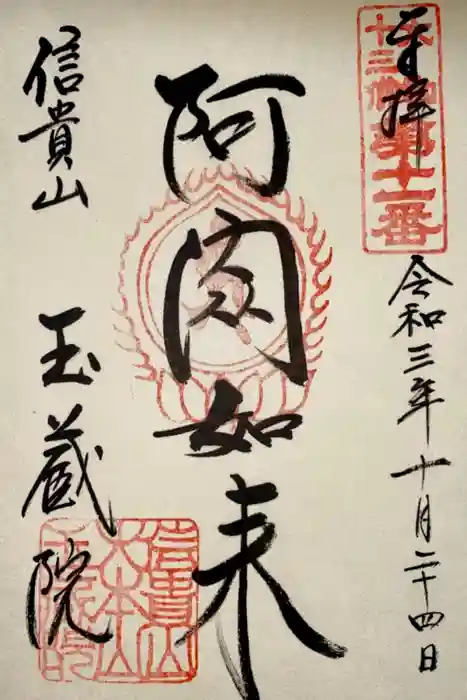 奉拝
十三佛第十一番
令和三年十月二十四日
阿閦如来
信貴山
玉蔵院
信貴山
大本山
玉蔵院